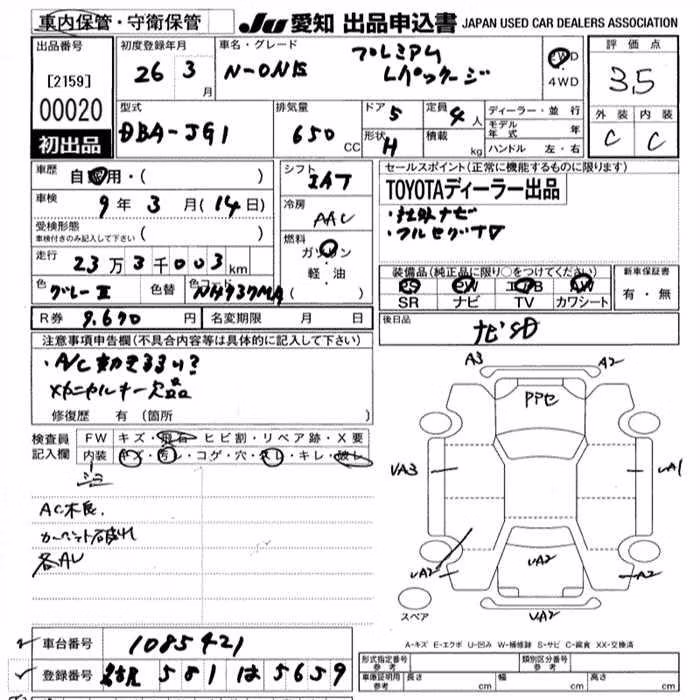 車内保管・守衛保管
JU 愛知 出品申込書 JAPAN USED CAR DEALERS ASSOCIATION
出品番号
[2159]
00020
初出品
初度登録年月
26年 3月
車名・グレード
N-ONE
プレミアム
Lパッケージ
2WD
4WD
評価点
3.5
外装 内装
C C
型式
DBA-JG1
排気量
650 CC
ドア 5
形状 H
定員 4人
積載 kg
ディーラー・並行
モデル年式 年
ハンドル 左・右
車歴
自家用・( )
車検
9年 3月(14日)
受検形態
車検付きのみ記入して下さい ( )
走行
23万3千003km
色 グレーII 色替 色コード NH737MA( )
シフト
IAT
冷房
AAC
燃料
ガソリン
軽・油
セールスポイント(正常に機能するものに限ります)
TOYOTAディーラー出品
・社外ナビ
・フルセグTV
装備品(純正品に限り○をつけてください)
PS PW エアB AW
SR ナビ TV カワシート
新車保証書
有・無
R券 9.670円 名変期限 月 日
後日品
ナビSD
注意事項申告欄(不具合内容等は具体的に記入して下さい)
・A/C 効き
メカニカルキー欠品
修復歴 有(箇所 )
検査員記入欄
FW キズ・飛石・ヒビ割・リペア跡・X要
内装 キズ・汚レ・コゲ・穴・スレ・キレ・破レ
AC不良.
カーペット破れ
各AU
A3 A2
PPセ
UA3 UA1
UA2 UA2 A2
UA2
スペア
A-キズ E-エクボ U-凹み W-補修跡 S-サビ C-腐食 XX-交換済
車台番号 1085421
登録番号 581 は 5659
形式指定番号 参考 類別区分番号 参考
車庫証明用 参考 長さ cm 幅 cm 高さ cm